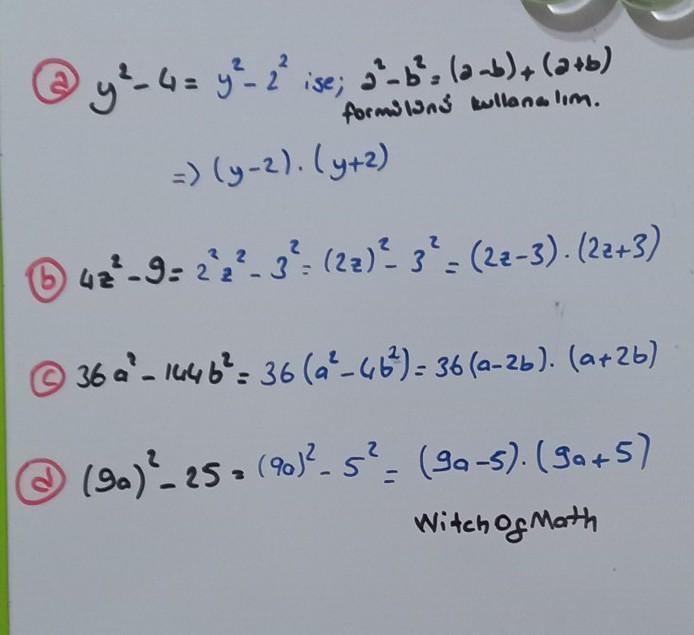 a y² - 4 = y² - 2² ise; a² - b² = (a-b) + (a+b)
formülünü kullanalım.
=> (y-2) . (y+2)
b 4z² - 9 = 2²z² - 3² = (2z)² - 3² = (2z-3) . (2z+3)
c 36a² - 144b² = 36(a² - 4b²) = 36(a-2b) . (a+2b)
d (9a)² - 25 = (9a)² - 5² = (9a-5) . (9a+5)
WitchOfMath